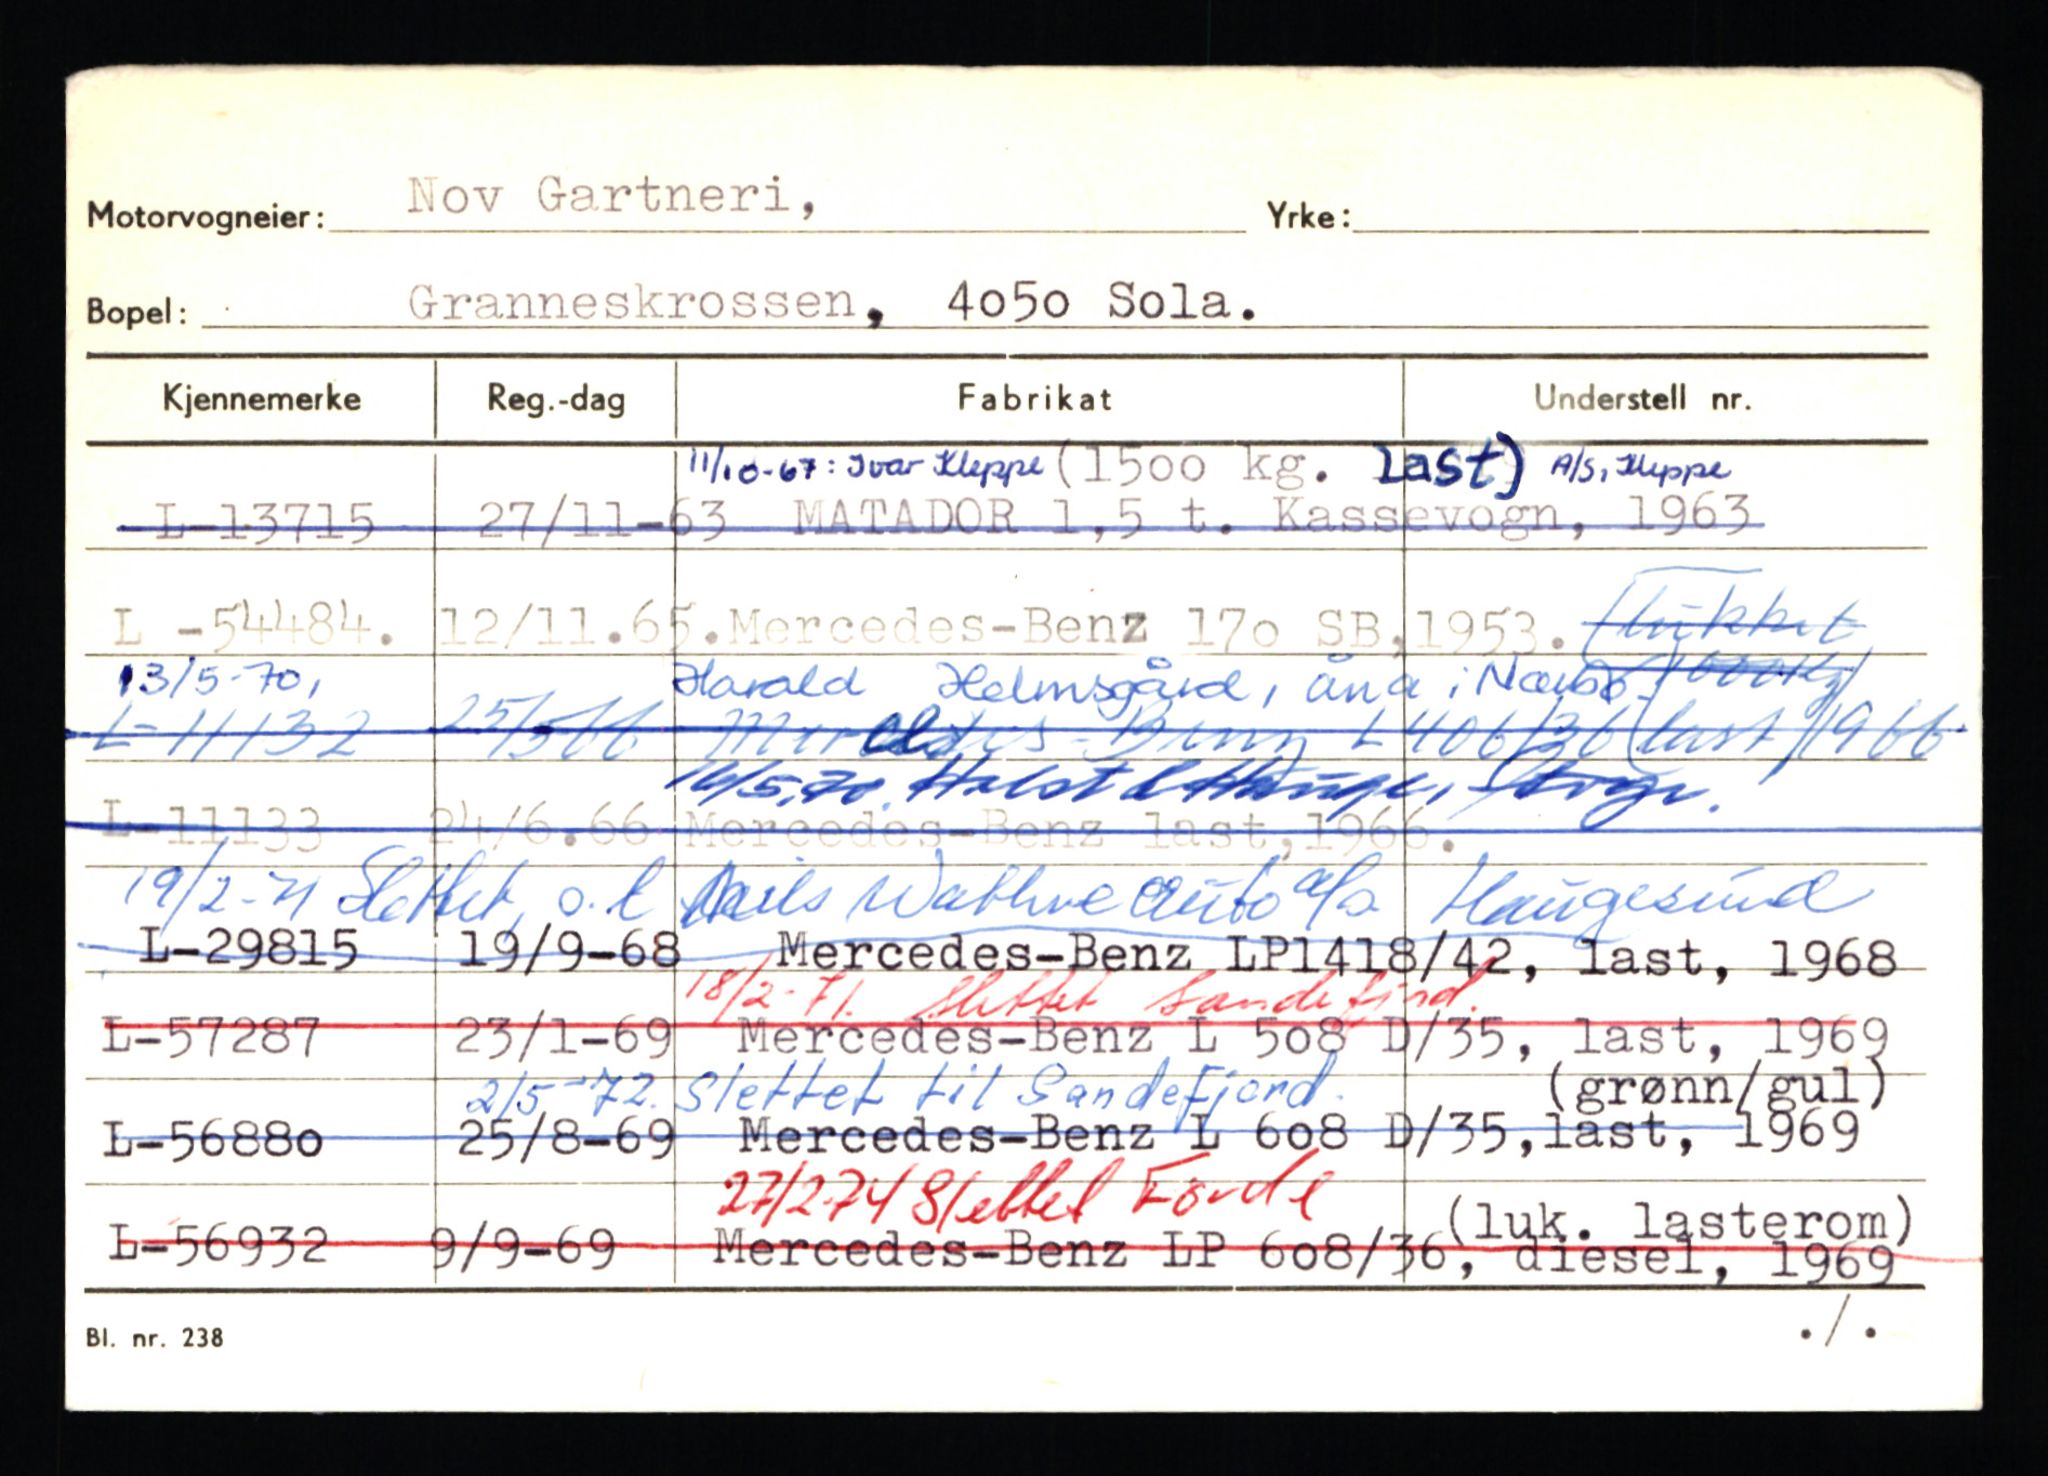 Motorvogneier: Nov Gartneri, Yrke:
Bopel: Granneskrossen, 4050 Sola.
Kjennemerke Reg.-dag Fabrikat Understell nr.
11/10-67: Ivar Kleppe (1500 kg. Last) A/S, Kleppe
L-13715 27/11-63 MATADOR 1,5 t. Kassevogn, 1963
L -54484. 12/11.65. Mercedes-Benz 170 SB, 1953.
13/5-70, Harald Helmsgård, åna i Nærbø
L-11132 25/5 66 Mercedes-Benz L 406/36 (last) 1966
16/5.70.
L-11133 24/6.66 Mercedes-Benz last, 1966.
19/2-71 Slettet, o.l. Nils Wathne auto a/s Haugesund
L-29815 19/9-68 Mercedes-Benz LP1418/42, last, 1968
18/2-71. Slettet Sandefjord.
L-57287 23/1-69 Mercedes-Benz L 508 D/35, last, 1969
2/5-72. Slettet til Sandefjord. (grønn/gul)
L-56880 25/8-69 Mercedes-Benz L 608 D/35, last, 1969
27/2-74 Slettet Førde (luk. lasterom)
L-56932 9/9-69 Mercedes-Benz LP 608/36, diesel, 1969
Bl. nr. 238 ./.